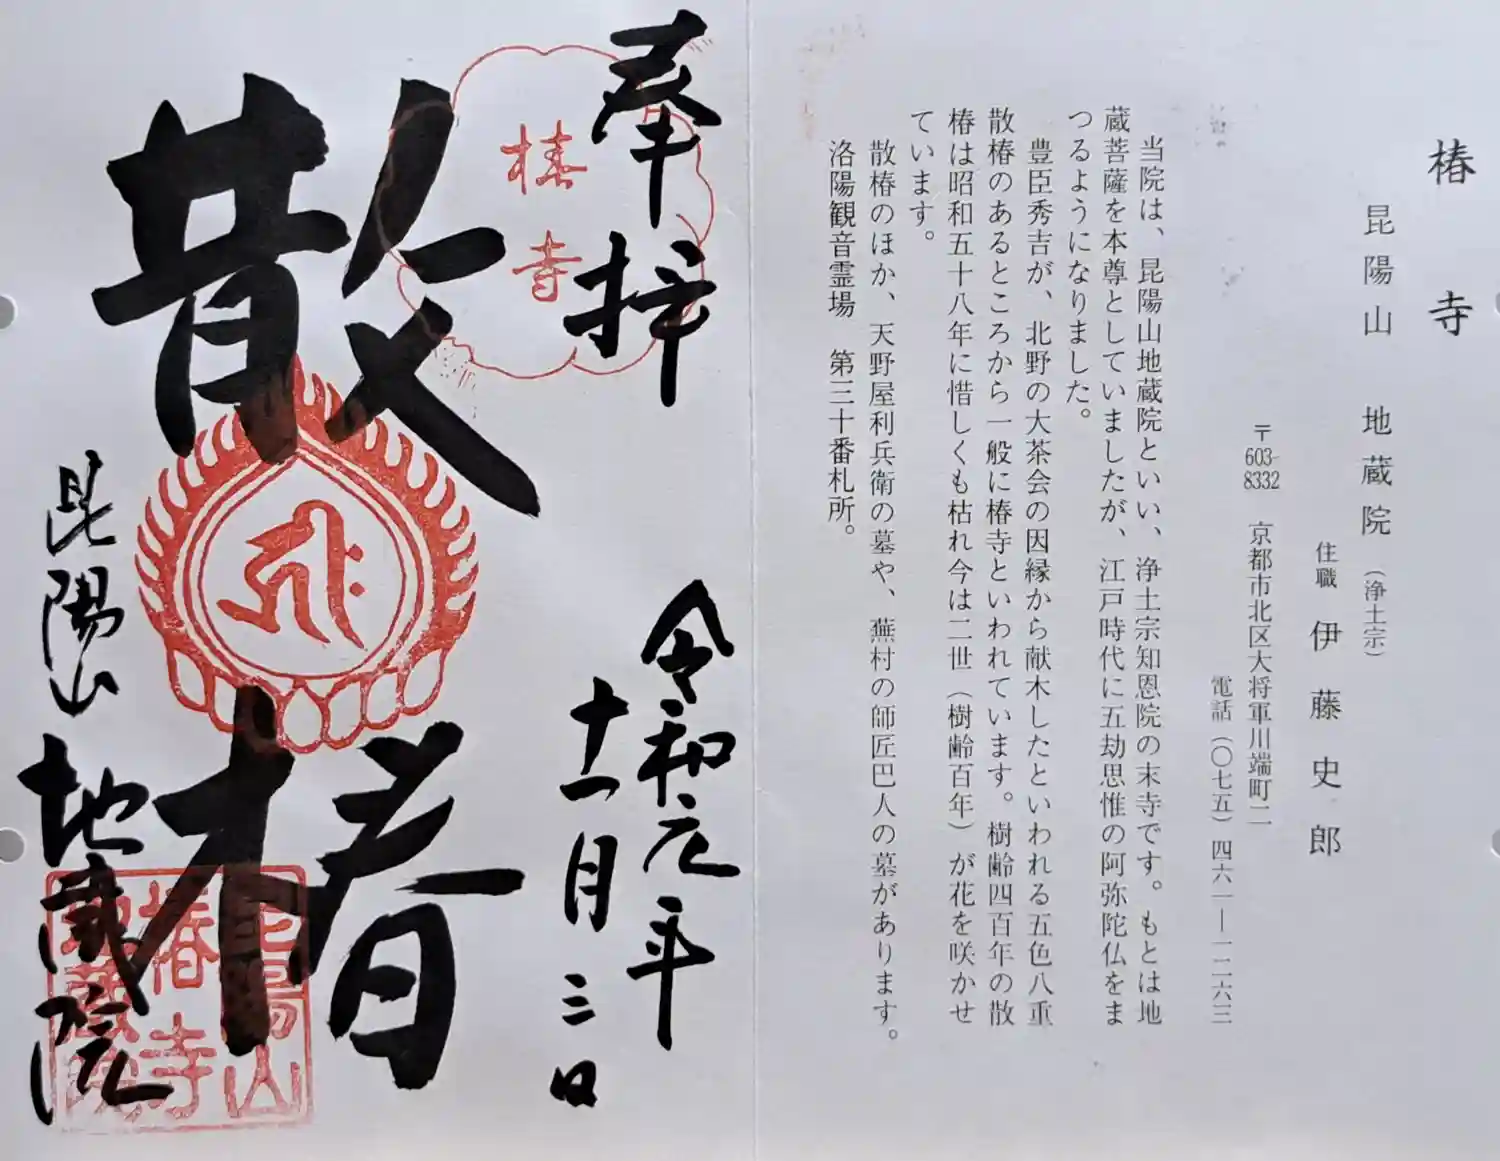 椿寺
昆陽山 地蔵院（浄土宗）
住職 伊藤史郎
〒603-8332 京都市北区大将軍川端町二
電話（〇七五）四六一―一二六三
当院は、昆陽山地蔵院といい、浄土宗知恩院の末寺です。もとは地
蔵菩薩を本尊としていましたが、江戸時代に五劫思惟の阿弥陀仏をま
つるようになりました。
豊臣秀吉が、北野の大茶会の因縁から献木したといわれる五色八重
散椿のあるところから一般に椿寺といわれています。樹齢四百年の散
椿は昭和五十八年に惜しくも枯れ今は二世（樹齢百年）が花を咲かせ
ています。
散椿のほか、天野屋利兵衛の墓や、蕪村の師匠巴人の墓があります。
洛陽観音霊場 第三十番札所。
奉拝
令和元年
十一月三日
椿寺
散椿
昆陽山
地蔵院
昆陽山
椿寺
地蔵院